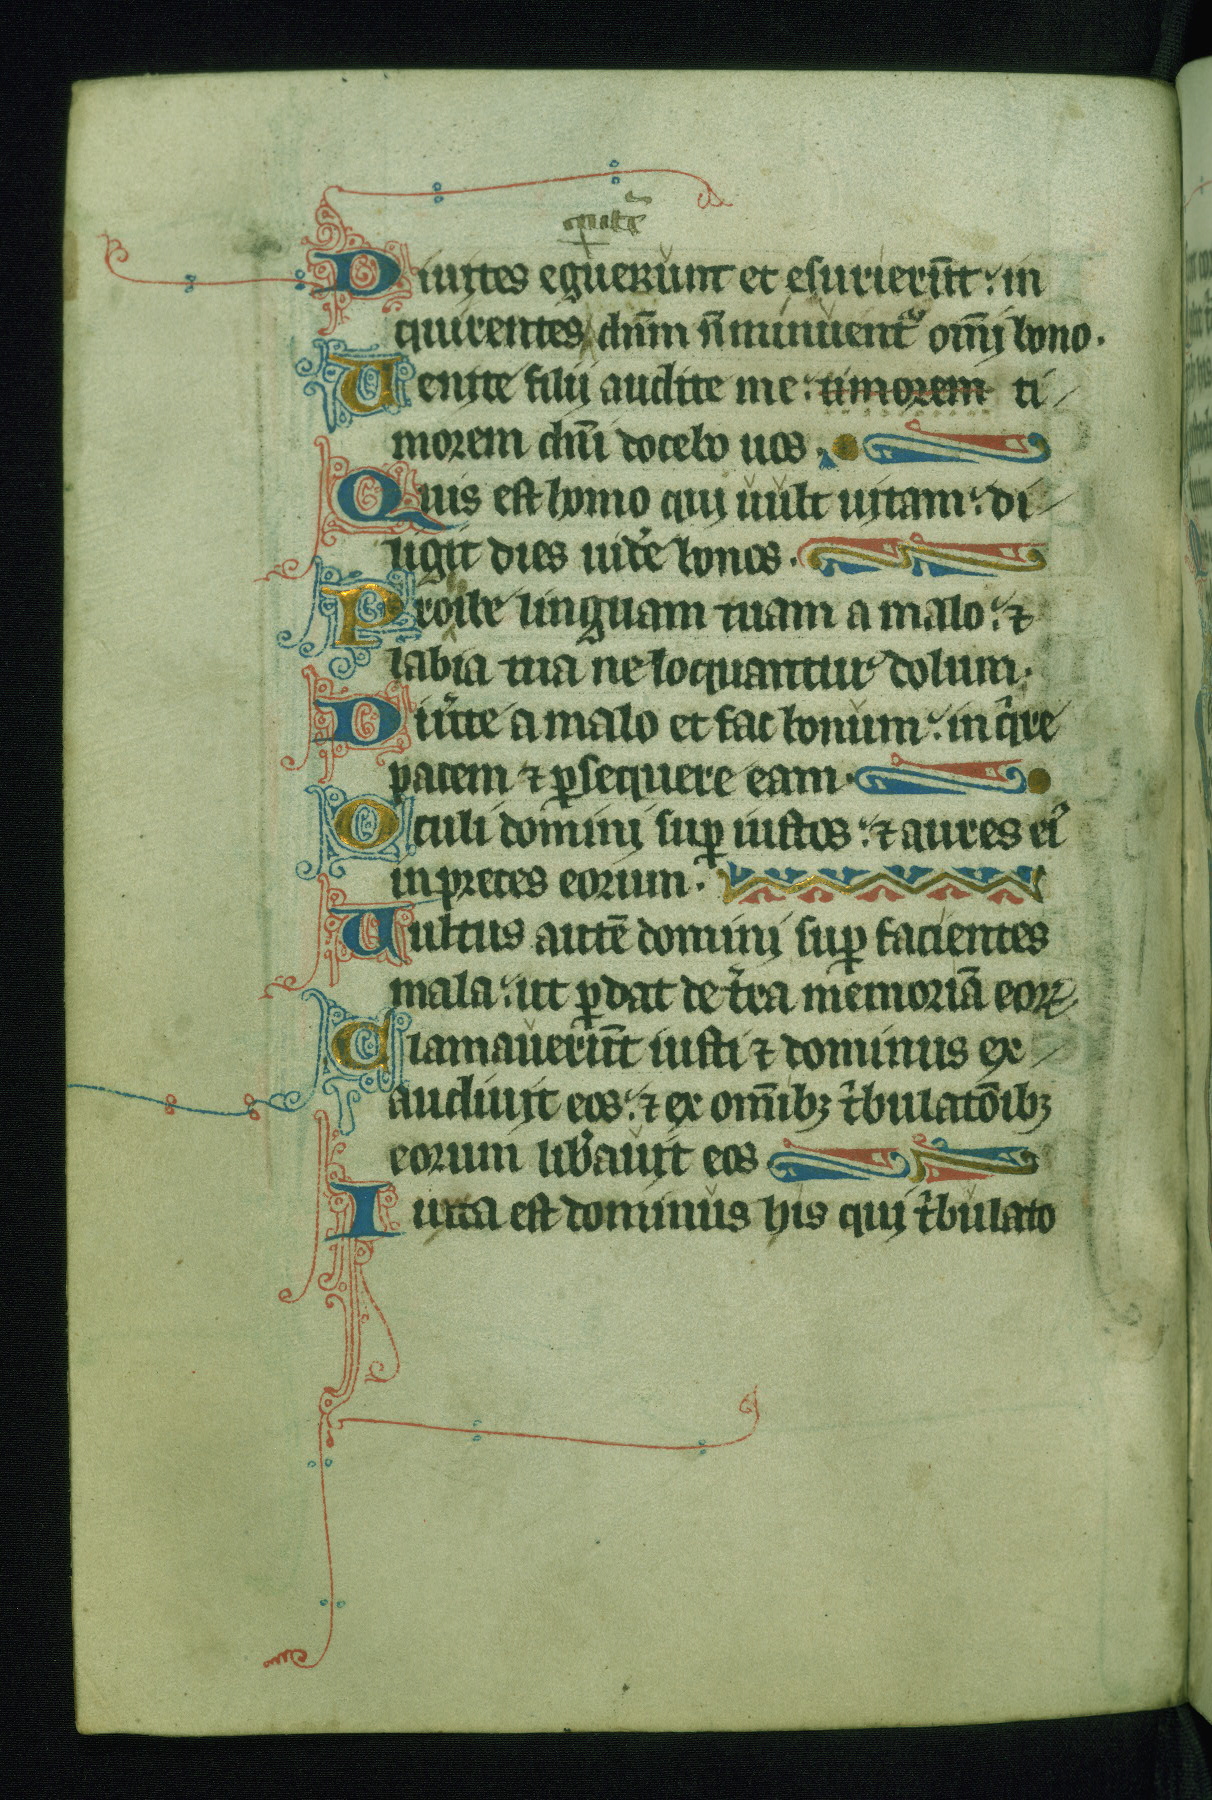 Diuites eguerunt et esurierūt: in
quirentes dn̄m n̄ minuent᷑ om̄i bono.
Uenite filii audite me: timorem ti
morem dn̄i docebo uos.
Quis est homo qui uult uitam: di
ligit dies uid'e bonos.
Proibe linguam tuam a malo: ⁊
labia tua ne loquantur dolum.
Diu'te a malo et fac bonum: inq're
pacem ⁊ ꝑsequere eam.
Oculi domini suꝑ iustos: ⁊ aures ei'
in preces eorum.
Uultus autē domini suꝑ facientes
mala: ut ꝑdat de t'ra memoriā eoꝝ.
Clamauerūt iusti ⁊ dominus ex
audiuit eos: ⁊ ex om̄ibꝫ t'bulatōibꝫ
eorum lib'auit eos
Iuxta est dominus his qui t'bulato